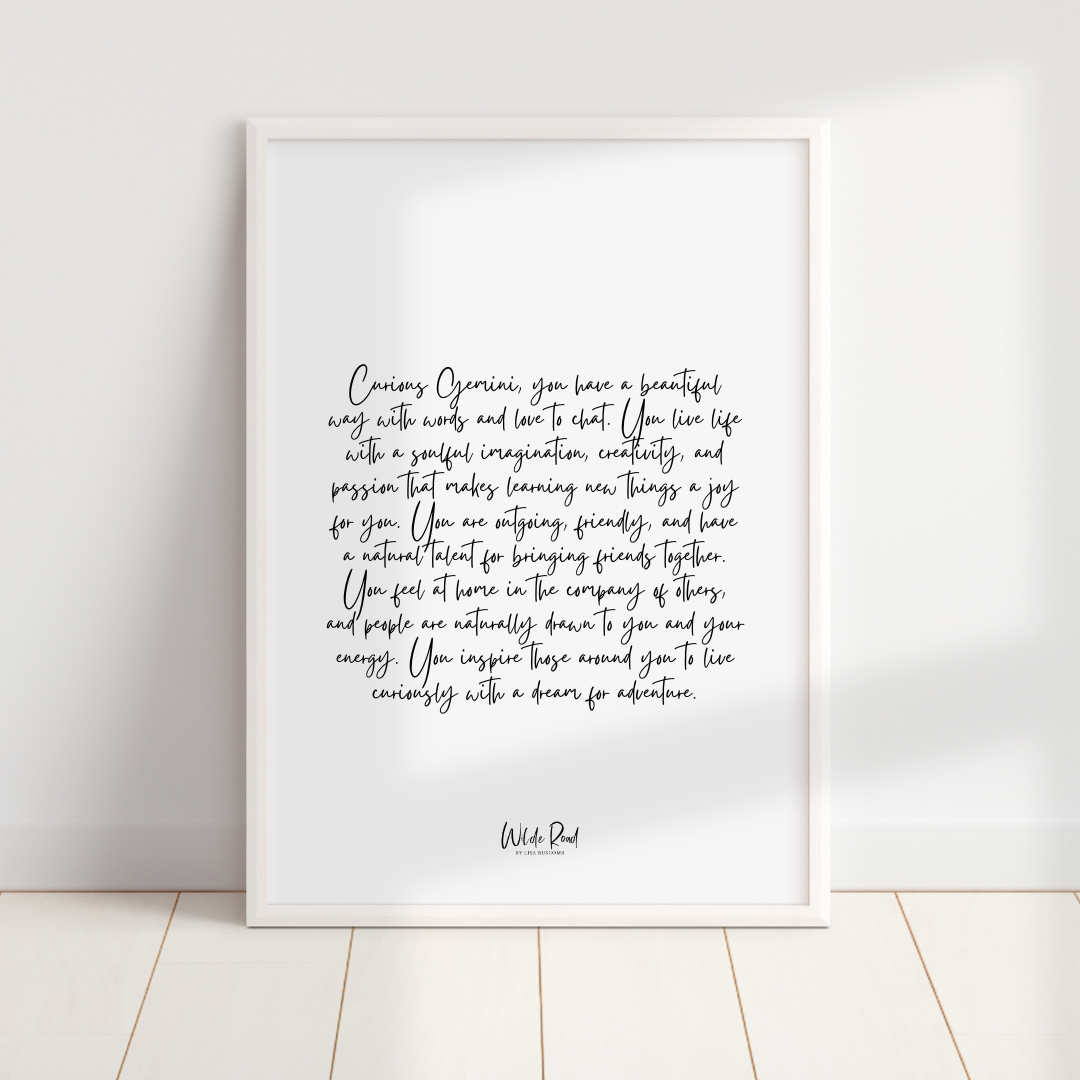 Curious Gemini, you have a beautiful
way with words and love to chat. You live life
with a soulful imagination, creativity, and
passion that makes learning new things a joy
for you. You are outgoing, friendly, and have
a natural talent for bringing friends together.
You feel at home in the company of others,
and people are naturally drawn to you and your
energy. You inspire those around you to live
curiously with a dream for adventure.
Wilde Road
BY LISA BUSCOMB